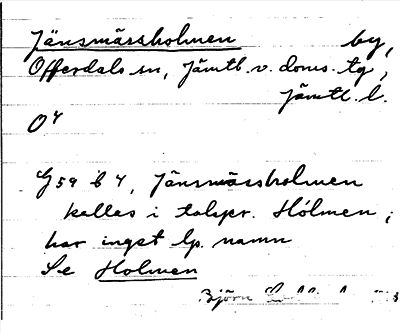 Jänsmässholmen by,
Offerdals sn, Jämtl. v. doms. tg,
Jämtl. l.
O4
G 59 b 4, Jänsmässholmen
kallas i talspr. Hólmen,
har inget lp. namn
Se Holmen
Björn